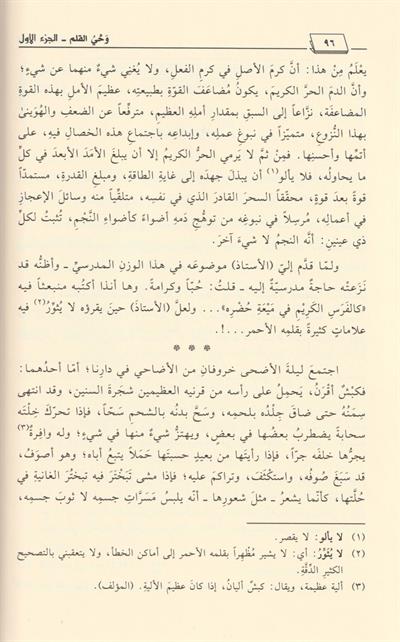 ٩٦
وَحْيُ القلم - الجزء الأول
يعْلَمُ مِنْ هذا: أنَّ كرَمَ الأصلِ في كرمِ الفعلِ، ولا يُغني شيءٌ منهما عن شيءٍ؛
وأنَّ الدمَ الحرَّ الكريمَ، يكونُ مُضاعَفَ القوّةِ بطبيعتِهِ، عظيمَ الأملِ بهذه القوةِ
المضاعفة، نزَّاعاً إلى السبقِ بمقدار أملِهِ العظيمِ، مترفِّعاً عن الضعفِ والهُوَينىٰ
بهذا النُّزوعِ، متميّزاً في نبوغِ عملِهِ، وإبداعِه باجتماعِ هذه الخصالِ فيهِ، على
أتمِّها وأحسنِها. فمِنْ ثَمَّ لا يَرمي الحرُّ الكريمُ إلا أن يبلغَ الأمَدَ الأبعدَ في كلِّ
ما يحاولُه، فلا يألو(١) أن يبذلَ جهدَه إلى غايةِ الطاقةِ، ومبلغِ القدرةِ، مستمدّاً
قوةً بعدَ قوةٍ، محقّقاً السحرَ القادرَ الذي في نفسِه، متلقّياً منه وسائلَ الإعجازِ
في أعمالِه، مُرسِلاً في نبوغِه من توهُّجِ دَمِهِ أضواءً كأضواءِ النَّجْمِ، تُثبتُ لكلِّ
ذي عينينِ: أنّه النجمُ لا شيءَ آخرَ.
ولما قدَّم إليّ (الأستاذُ) موضوعَه في هذا الوزنِ المدرسيِّ - وأظنُّه قد
نَزَعتْه حاجةٌ مدرسيّةٌ إليه - قلتُ: حُبّاً وكرامةً. وها أنذا أكتُبه منبعثاً فيهِ
«كالفَرَسِ الكَرِيْمِ في مَيْعَةِ حُضْرِهِ»... ولعلَّ (الأستاذَ) حينَ يقرؤه لا يُثَوِّرُ(٢) فيه
علاماتٍ كثيرةً بقلمِه الأحمرِ...!.
* * *
اجتمعَ ليلةَ الأضحى خروفانِ من الأضاحي في دارِنا؛ أما أحدُهما:
فكبْشٌ أقْرَنُ، يَحمِلُ على رأسه من قرنيه العظيمينِ شجَرةَ السنينَ، وقد انتهى
سِمَنُهُ حتى ضاق جِلْدُه بلحمِه، وسَحَّ بدنُه بالشحمِ سَحّاً، فإذا تحرّكَ خِلْتَه
سحابةً يضطربُ بعضُها في بعضٍ، ويهتزُّ شيءٌ منها في شيءٍ؛ وله وافِرةٌ(٣)
يجرُّها خلفَه جرّاً، فإذا رأيتَها من بعيدٍ حسبتَها حَمَلاً يتبعُ أباه؛ وهو أصوَفُ،
قد سَبَغَ صُوفُه، واستكْثَفَ، وتراكمَ عليه؛ فإذا مشى تَبَخْتَرَ فيه تبخْتُرَ الغانيةِ في
حُلَّتِها، كأنّما يشعرُ - مثلَ شعورِها - أنّه يلبسُ مَسَرَّاتِ جسمِه لا ثوبَ جسمِه،
(١) لا يألو: لا يقصر.
(٢) لا يُثَوِّرُ: أي: لا يشير مُظْهِراً بقلمه الأحمر إلى أماكن الخطأ، ولا يتعقبني بالتصحيح
الكثيرِ الدِّقَّةِ.
(٣) ألية عظيمة، ويقال: كبشٌ أليانٌ، إذا كان عظيمَ الألية. (المؤلف).